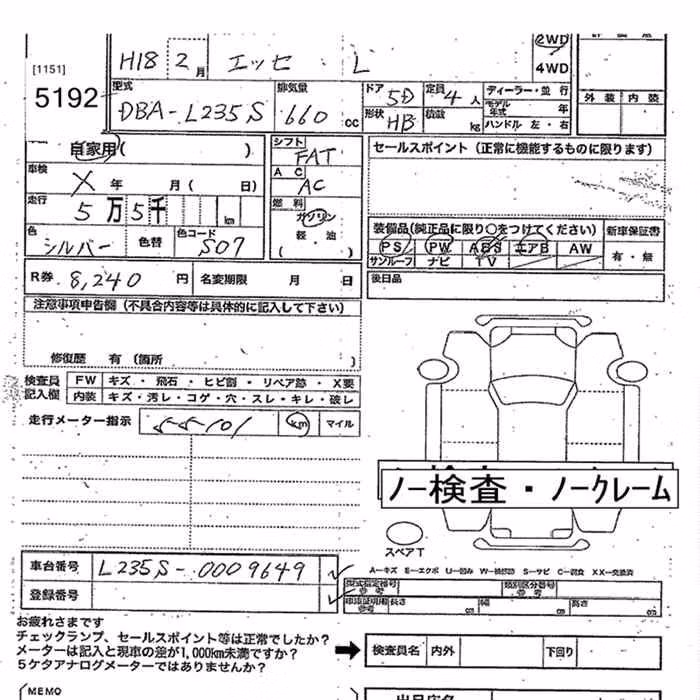 2WD
[1151] H18 2月 エッセ L 4WD
5192 型式 DBA-L235S 排気量 660 cc ドア 5D 定員 4人 ディーラー・並 行
形状 HB 積載 kg モデル年式 年 外装 内装
ハンドル 左・右
自家用( ) シフト FAT セールスポイント (正常に機能するものに限ります)
車検 X 年 月 ( 日) AC AC
走行 5万5千 km 燃料 ガソリン
軽・油
( )
色 シルバー 色替 色コード S07 装備品(純正品に限り○をつけてください) 新車保証書
PS PW ABS エアB AW 有・無
サンルーフ ナビ TV
R券 8,240 円 名変期限 月 日 後日品
注意事項申告欄 (不具合内容等は具体的に記入して下さい)
修復歴 有 (箇所 )
検査員記入欄 FW キズ・飛石・ヒビ割・リペア跡・X要
内装 キズ・汚レ・コゲ・穴・スレ・キレ・破レ
走行メーター指示 55101 km マイル
ノー検査・ノークレーム
スペアT
車台番号 L235S-0009649 A-キズ E-エクボ U-凹み W-補修跡 S-サビ C-腐食 XX-交換済
登録番号 型式指定番号 参考 類別区分番号 参考
車庫証明用 参考 長さ cm 幅 cm 高さ cm
お疲れさまです
チェックランプ、セールスポイント等は正常でしたか?
メーターは記入と現車の差が1,000km未満ですか? 検査員名 内外 下回り
5ケタアナログメーターではありませんか?
MEMO 出品店名